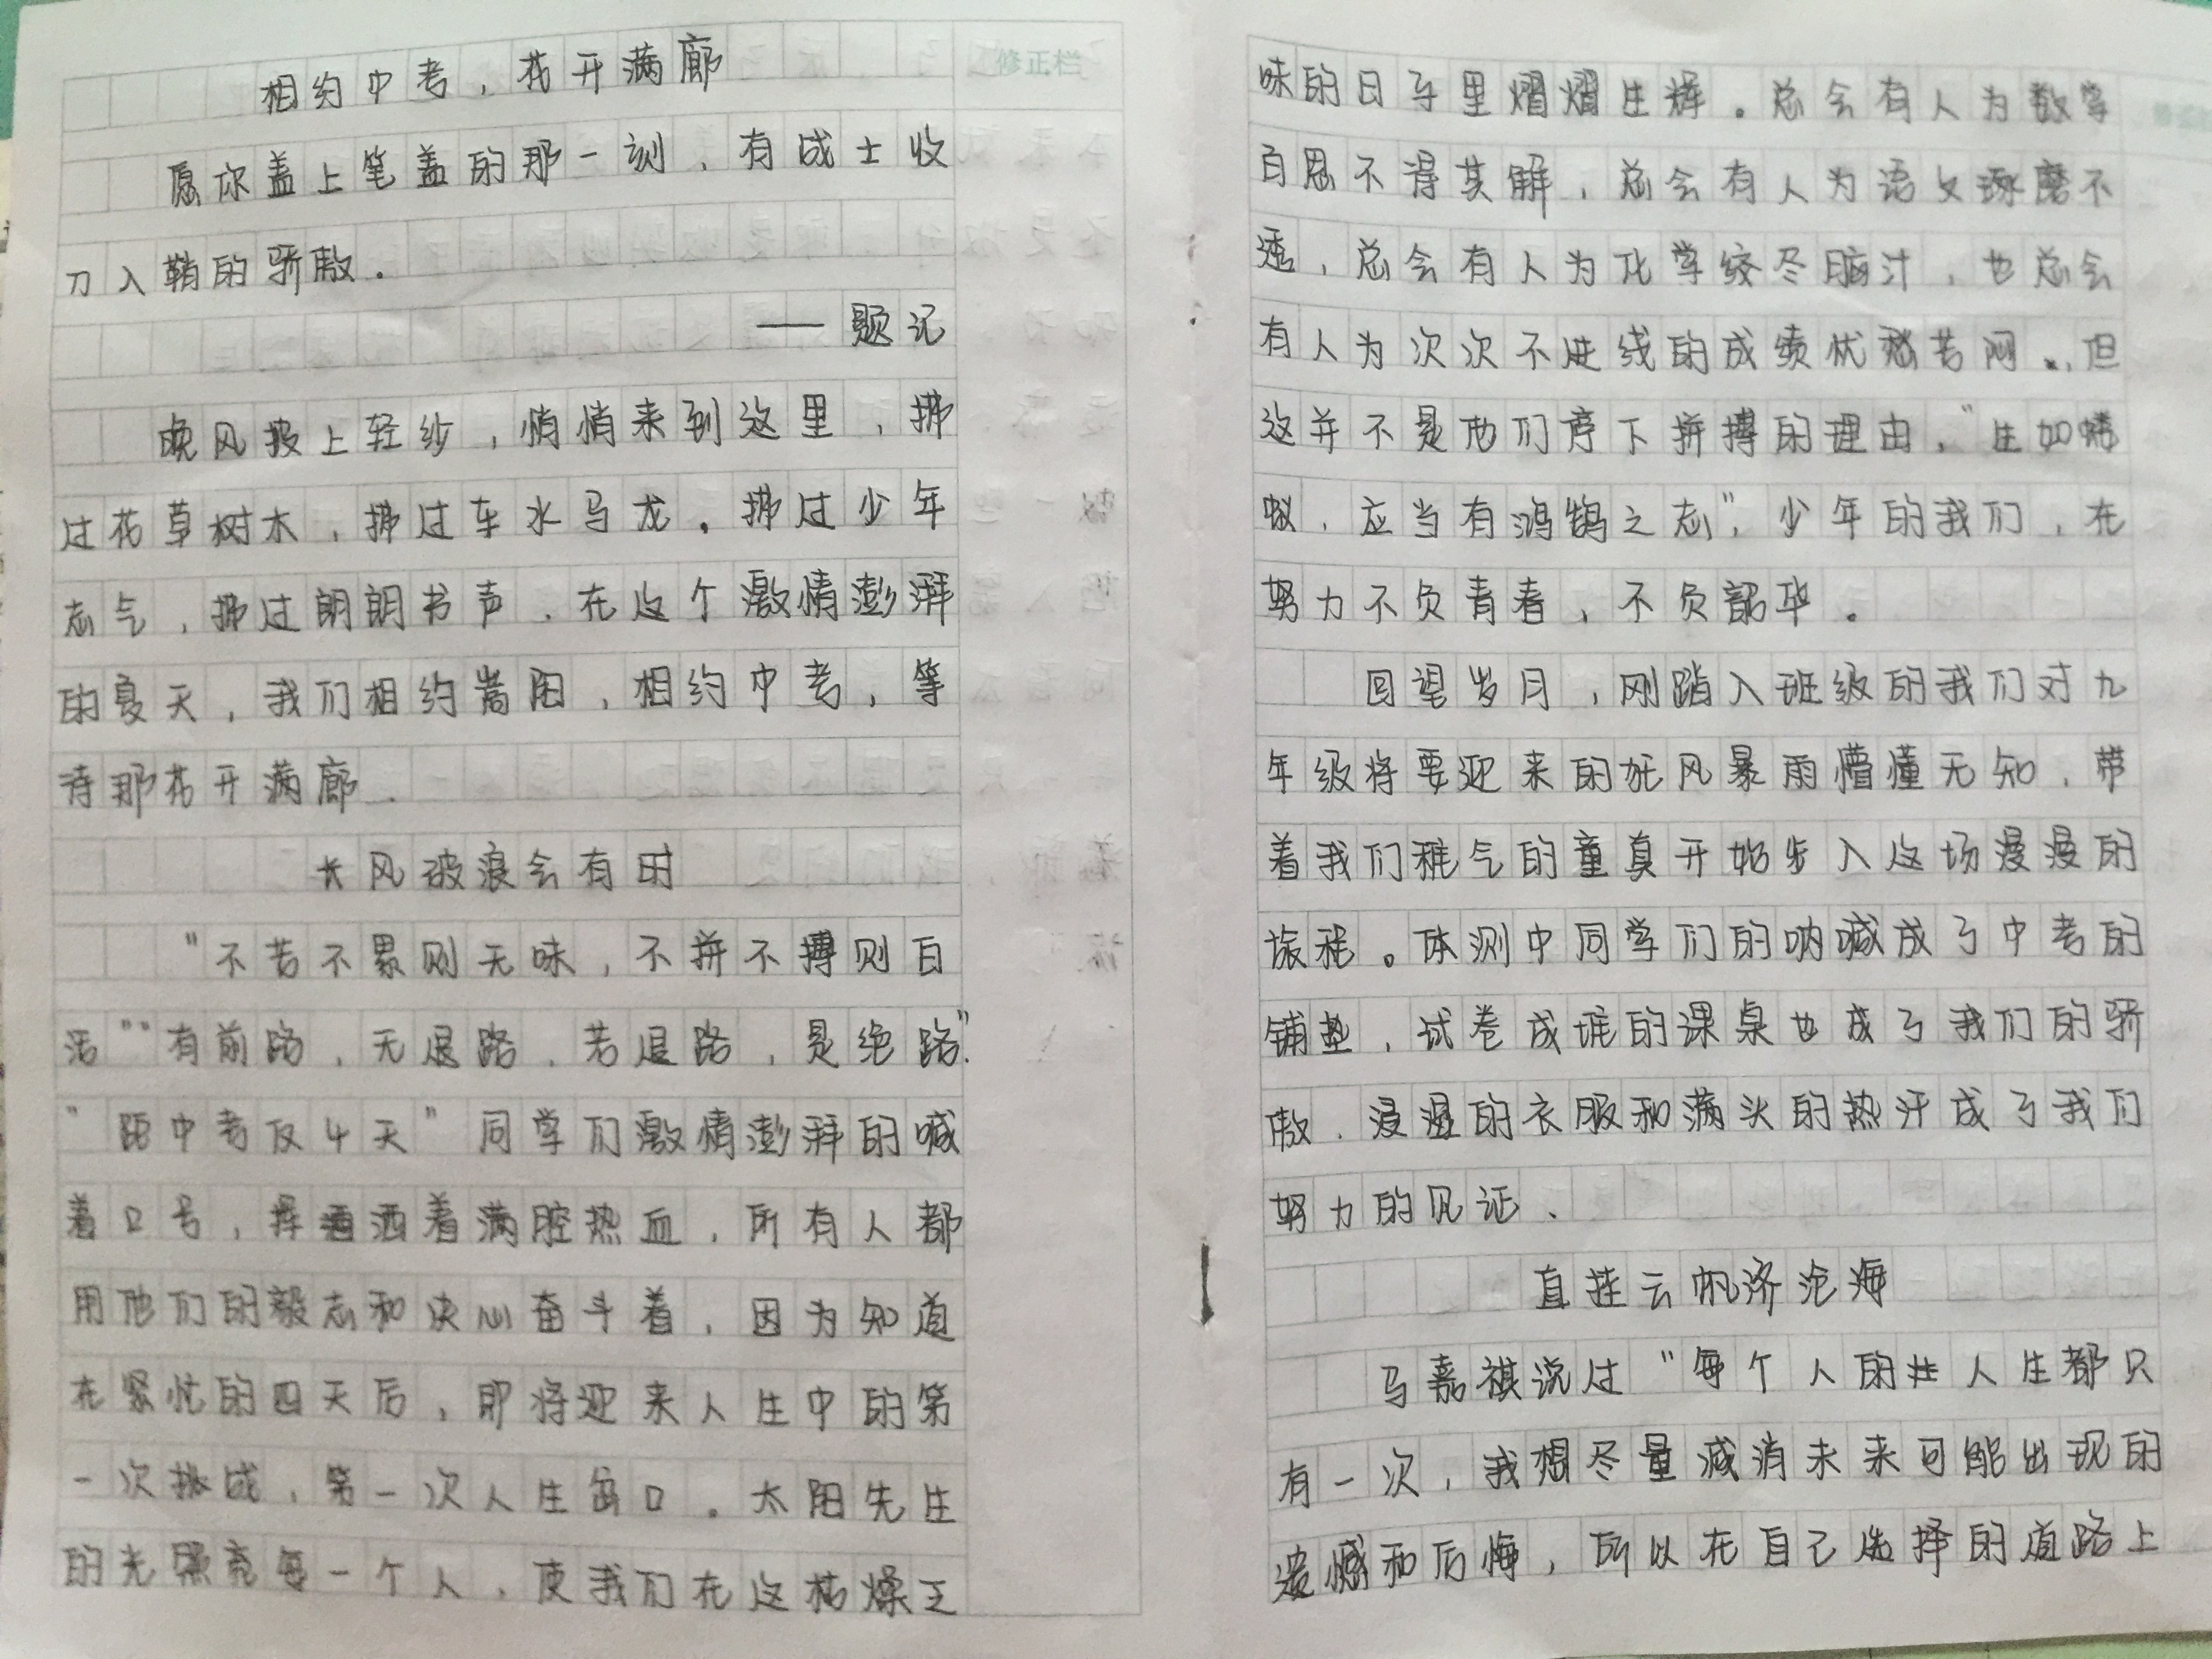 相约中考，花开满廊
修正栏
愿你盖上笔盖的那一刻，有战士收
刀入鞘的骄傲．
——题记
晚风披上轻纱，悄悄来到这里，拂
过花草树木，拂过车水马龙．拂过少年
志气，拂过朗朗书声．在这个激情澎湃
的夏天，我们相约嵩阳，相约中考，等
待那花开满廊．
长风破浪会有时
"不苦不累则无味，不拼不搏则白
活""有前路，无退路．若退路，是绝路".
"距中考仅4天"同学们激情澎湃的喊
着口号，挥洒着满腔热血．所有人都
用他们的毅志和决心奋斗着，因为知道
在紧忙的四天后，即将迎来人生中的第
一次挑战，第一次人生岔口。太阳先生
的光照亮每一个人，使我们在这枯燥乏
味的日子里熠熠生辉。总会有人为数学
百思不得其解，总会有人为语文琢磨不
透，总会有人为化学绞尽脑汁，也总会
有人为次次不进线的成绩忧愁苦闷．，但
这并不是他们停下拼搏的理由，"生如蝼
蚁，应当有鸿鹄之志"，少年的我们，在
努力不负青春，不负韶华．
回望岁月，刚踏入班级的我们对九
年级将要迎来的狂风暴雨懵懂无知，带
着我们稚气的童真开始步入这场漫漫的
旅程。体测中同学们的呐喊成了中考的
铺垫，试卷成堆的课桌也成了我们的骄
傲．浸湿的衣服和满头的热汗成了我们
努力的见证．
直挂云帆济沧海
马嘉祺说过"每个人的人生都只
有一次，我想尽量减消未来可能出现的
遗憾和后悔，所以在自己选择的道路上